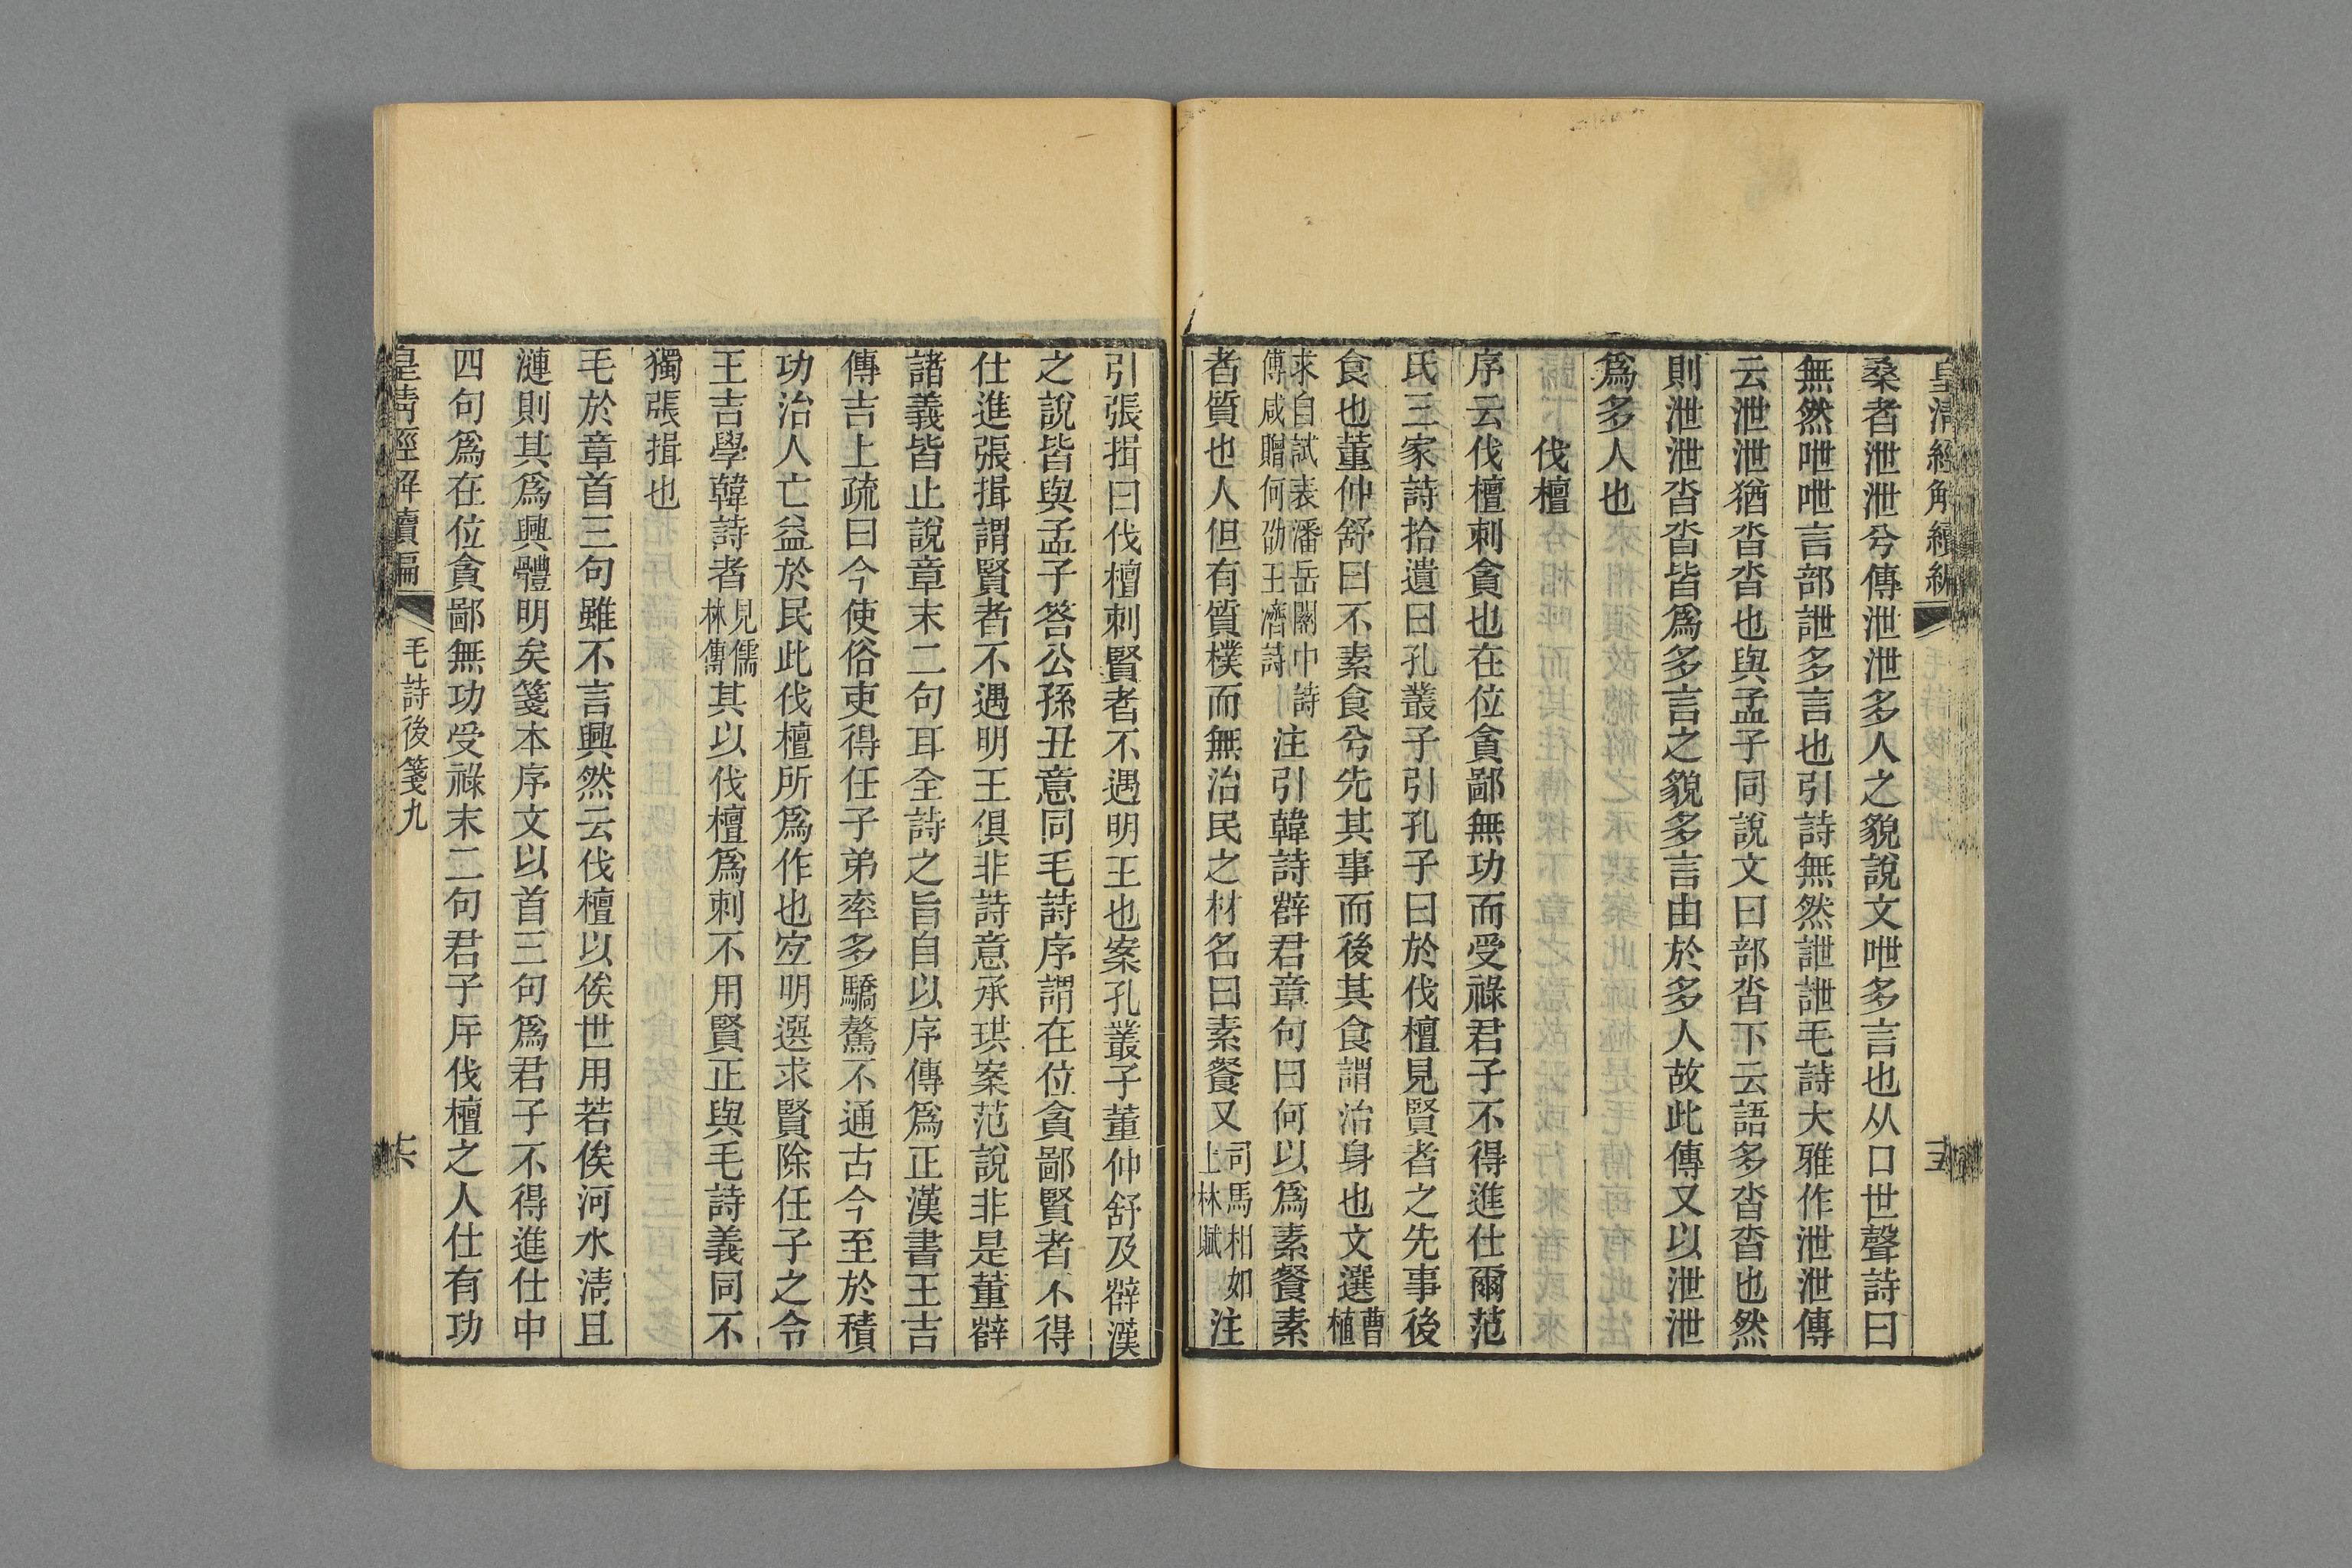 皇清經解續編
毛詩後箋九
十五
桑者泄泄兮傳泄泄多人之貌說文呭多言也从口世聲詩曰
無然呭呭言部詍多言也引詩無然詍詍毛詩大雅作泄泄傳
云泄泄猶沓沓也與孟子同說文曰部沓下云語多沓沓也然
則泄泄沓沓皆爲多言之貌多言由於多人故此傳又以泄泄
爲多人也
伐檀
序云伐檀刺貪也在位貪鄙無功而受祿君子不得進仕爾范
氏三家詩拾遺曰孔叢子引孔子曰於伐檀見賢者之先事後
食也董仲舒曰不素食兮先其事而後其食謂治身也文選曹植
求自試表潘岳關中詩傅咸贈何劭王濟詩注引韓詩薛君章句曰何以爲素餐素
者質也人但有質樸而無治民之材名曰素餐又司馬相如上林賦注
引張揖曰伐檀刺賢者不遇明王也案孔叢子董仲舒及薛漢
之說皆與孟子答公孫丑意同毛詩序謂在位貪鄙賢者不得
仕進張揖謂賢者不遇明王俱非詩意承珙案范說非是董薛
諸義皆止說章末二句耳全詩之旨自以序傳爲正漢書王吉
傳吉上疏曰今使俗吏得任子弟率多驕驁不通古今至於積
功治人亡益於民此伐檀所爲作也宜明選求賢除任子之令
王吉學韓詩者見儒林傳其以伐檀爲刺不用賢正與毛詩義同不
獨張揖也
毛於章首三句雖不言興然云伐檀以俟世用若俟河水淸且
漣則其爲興體明矣箋本序文以首三句爲君子不得進仕中
四句爲在位貪鄙無功受祿末二句君子斥伐檀之人仕有功
皇清經解續編
毛詩後箋九
十六